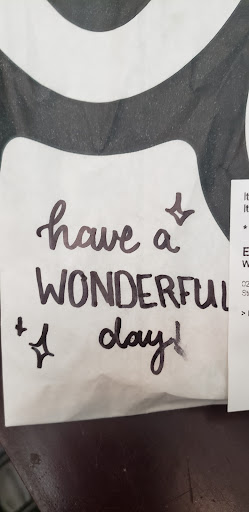 have a
WONDERFUL
day!
It
It
*
E
W
02
St
>